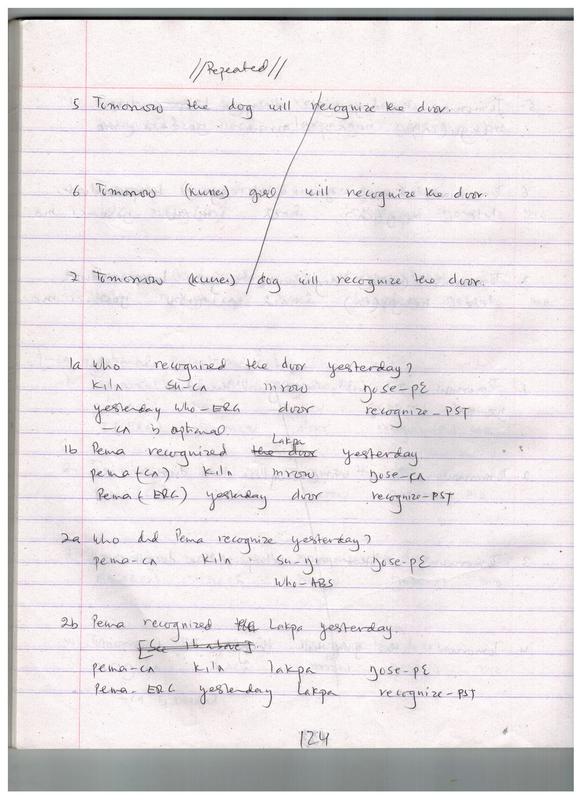 //Repeated//
5 Tomorrow the dog will recognize the door.
6 Tomorrow (kunei) girl will recognize the door.
7 Tomorrow (kunei) dog will recognize the door.
1a Who recognized the door yesterday?
kilʌ su-cʌ mrow ŋose-pɛ
yesterday who-ERG door recognize-PST
-cʌ is optional
1b Pema recognized the door Lakpa yesterday.
pema(cʌ) kilʌ mrow ŋose-cʌ
Pema(ERG) yesterday door recognize-PST
2a Who did Pema recognize yesterday?
pema-cʌ kilʌ ŋose-pɛ
Who-ABS
2b Pema recognized Lakpa yesterday.
[See 1b above]
pema-cʌ kilʌ lakpa ŋose-pɛ
Pema-ERG yesterday Lakpa recognize-PST
124